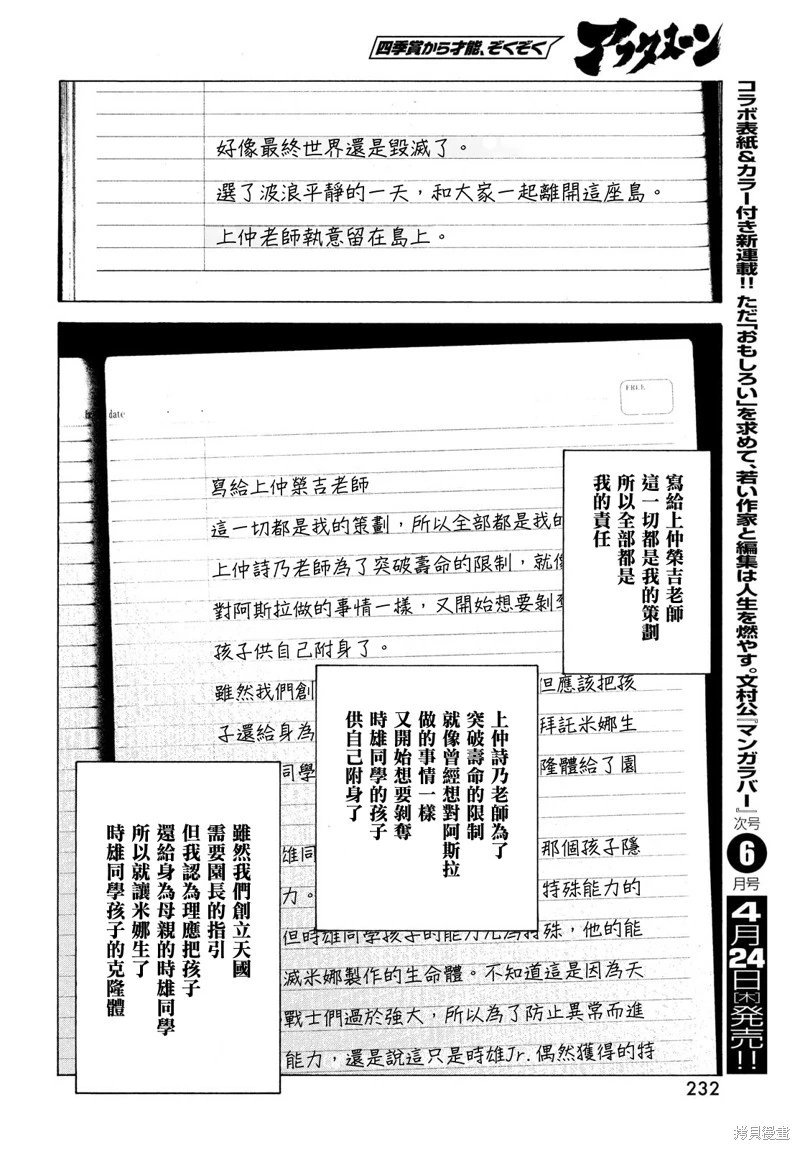 四季賞から才能、ぞくぞく
アフタヌーン
コラボ表紙&カラー付き新連載!! ただ「おもしろい」を求めて、若い作家と編集は人生を燃やす。文村公『マンガラバー』次号6月号4月24日[木]発売!!
好像最終世界還是毀滅了。
選了波浪平靜的一天,和大家一起離開這座島。
上仲老師執意留在島上。
date
FREE
寫給上仲榮吉老師
這一切都是我的策劃,所以全部都是我的
上仲詩乃老師為了突破壽命的限制,就像
對阿斯拉做的事情一樣,又開始想要剝奪
孩子供自己附身了。
雖然我們創
但應該把孩
子還給身為
拜託米娜生
同學
隆體給了園
雄同
那個孩子隱
力。
特殊能力的
但時雄同學孩子的能力尤為特殊,他的能
滅米娜製作的生命體。不知道這是因為天
戰士們過於強大,所以為了防止異常而進
能力,還是說這只是時雄Jr.偶然獲得的特
寫給上仲榮吉老師
這一切都是我的策劃
所以全部都是
我的責任
上仲詩乃老師為了
突破壽命的限制
就像曾經想對阿斯拉
做的事情一樣
又開始想要剝奪
時雄同學的孩子
供自己附身了
雖然我們創立天國
需要園長的指引
但我認為理應把孩子
還給身為母親的時雄同學
所以就讓米娜生了
時雄同學孩子的克隆體
232
拷貝漫畫